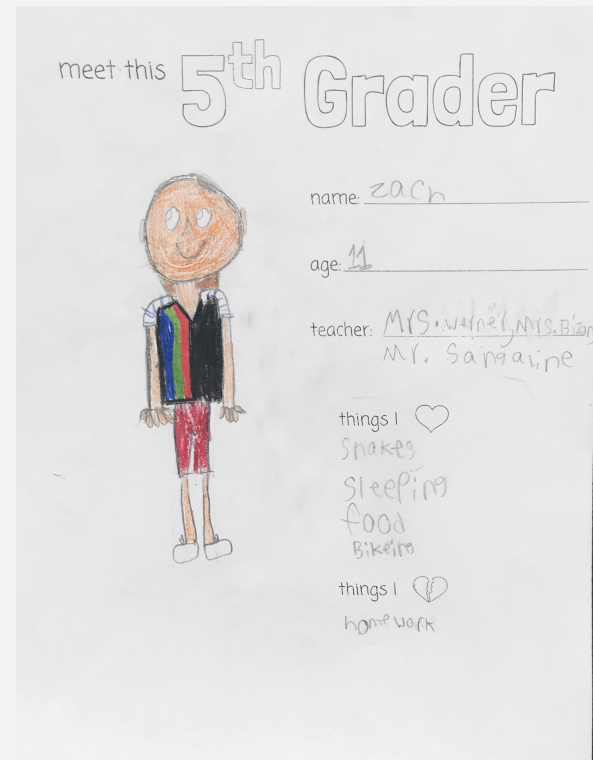 meet this 5th Grader
name: zach
age: 11
teacher: Mrs. Werner, Mrs.
Mr. Sangaline
things I
Snakes
Sleeping
food
Bikeing
things I
homework